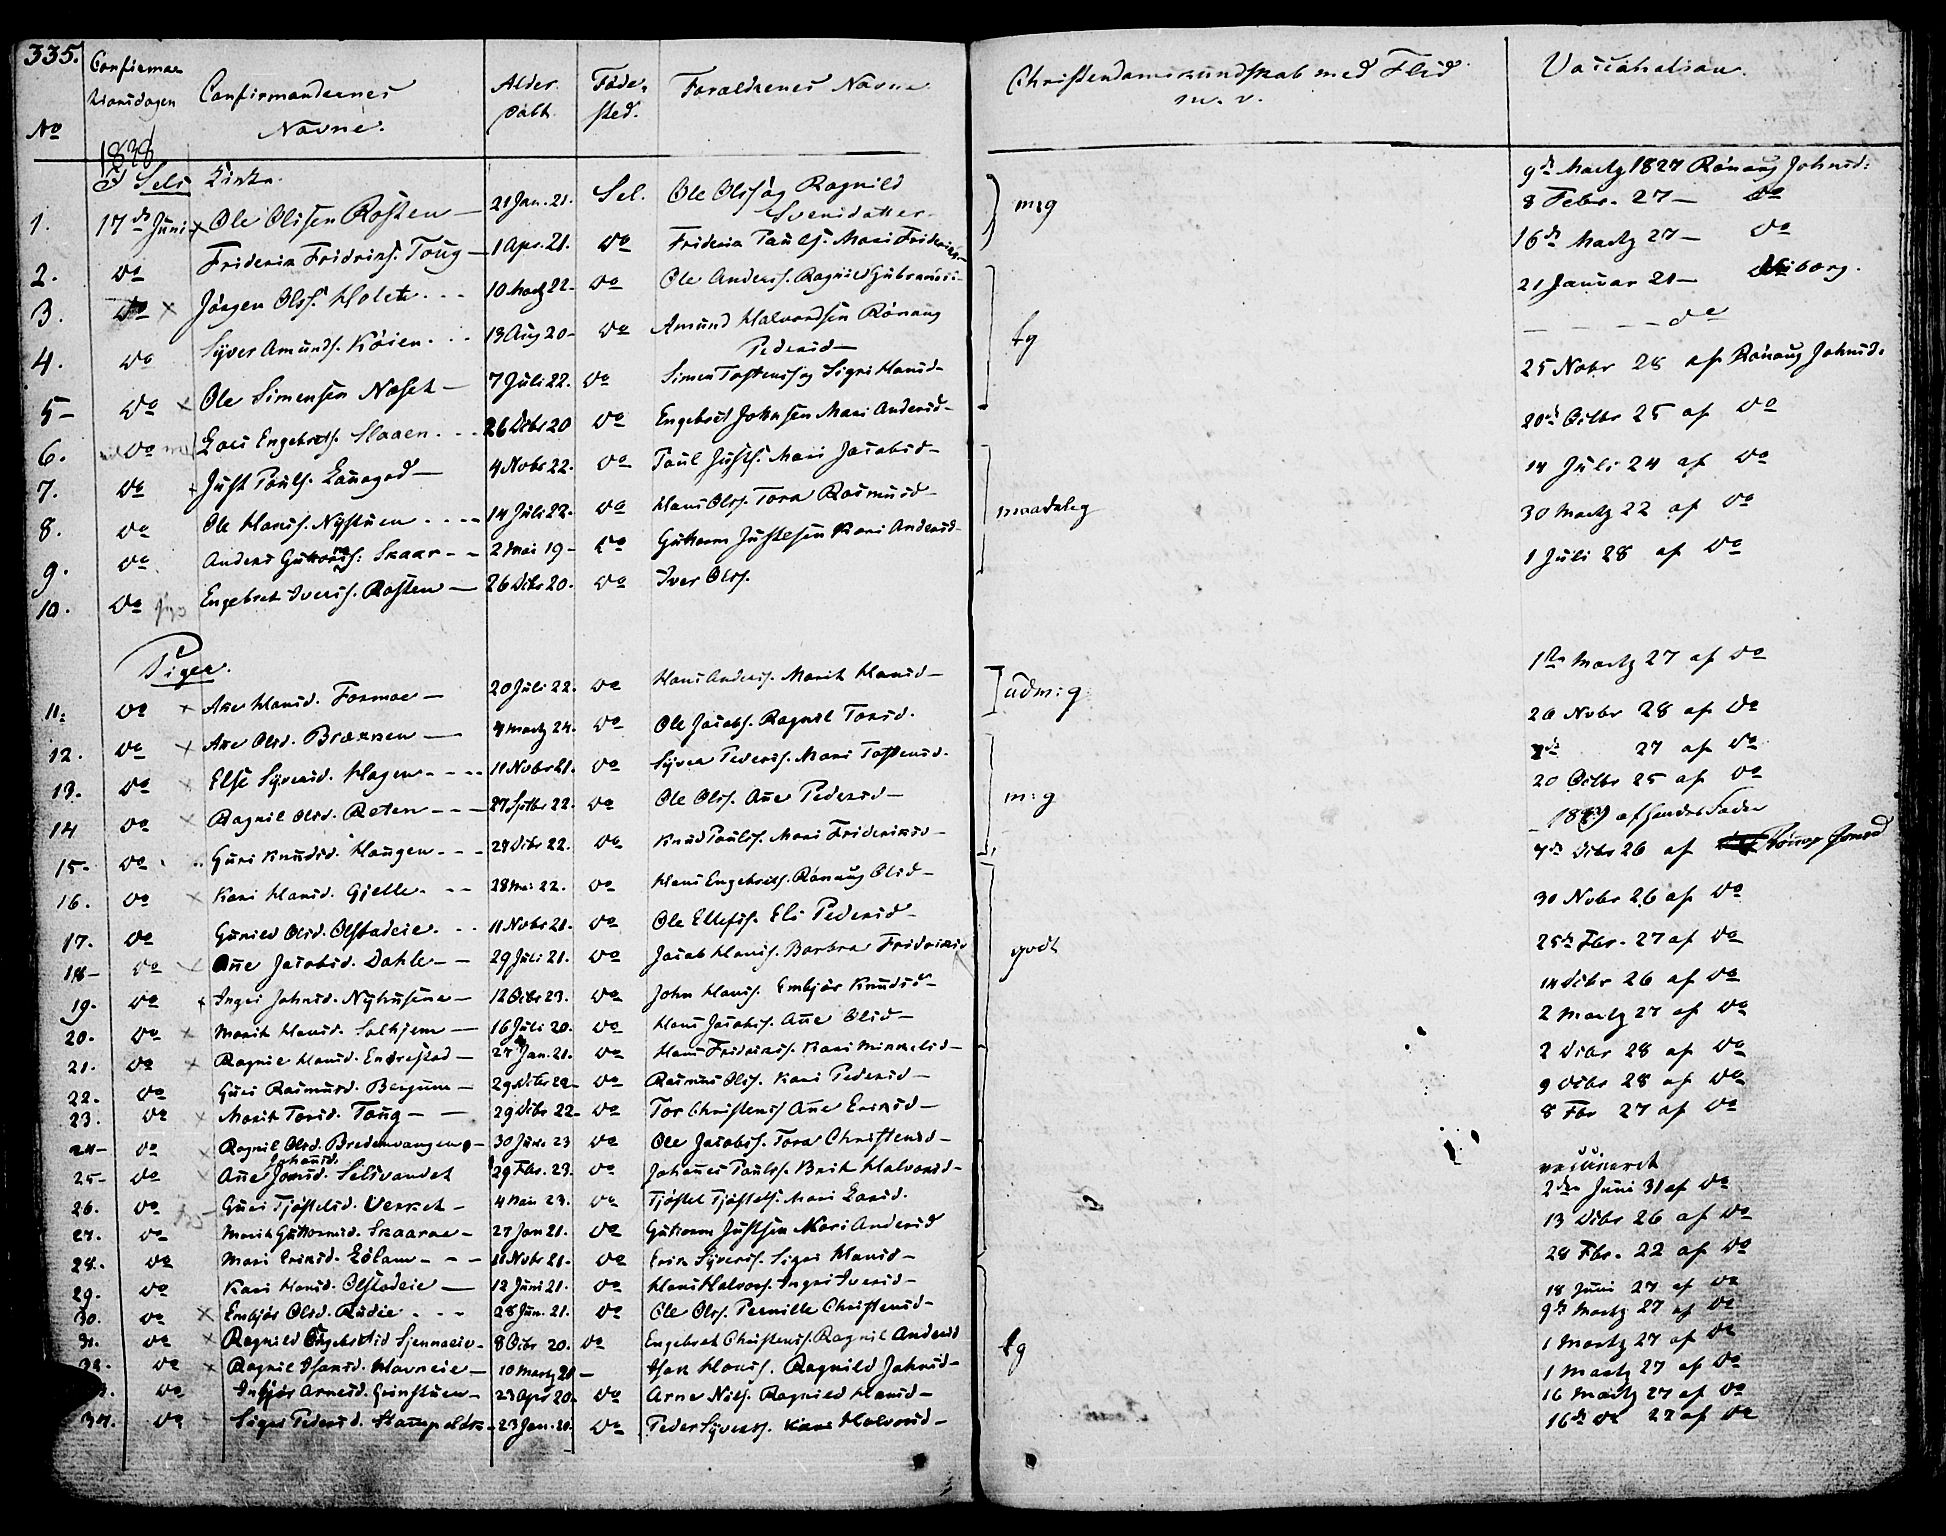 335.
No Confirmationsdagen Confirmandernes Navne. Alder døbt. Føde sted. Forældrenes Navne Christendomskundskab med Flid m. v. Vaccination.
1838
I Sels Kirke.
9de Martz 1827 Rønaug Johnsd:
1. 17de Juni x Ole Olssen Rosten — 21 Jan. 21. Sel. Ole Olss og Ragnild Svensdatter — m:g 8 Febr. 27 — do
2. do Friderik Fridrichs. Toug — 1 Apr. 21. do Friderik Pauls. Mari Frideriksd— 16de Martz 27 — do
3. do x Jørgen Olss. Holet... 10 Martz 22 — do Ole Anders. Ragnild Gubrands: 21 Januar 21 —
4. do Syver Amunds. Køien... 13 Aug 20 — do Amund Halvordsen Rønaug Pedersd— tg — — — — do
5 — do x Ole Simensen Næset — 7 Juli 22. do Simen Tostens og Sigri Hansd— 25 Nobr 28 af Rønaug Johnsd.
6. do Lars Engebrets. Slaaen... 26 Debr 20 do Engebret Johnsen Mari Andersd— 20de Octbr 25 af do
7. do x Just Pouls. Laurgard — 4 Nobr 22. do Paul Justs. Mari Jacobsd— 14 Juli 24 af do
8. do Ole Hanss. Nystuen.... 14 Juli 22. do Hans Ols. Tora Rasmusd— maadelig 30 Martz 22 af do
9. do Anders Guttorms. Skaar — — 2 Mai 19 — do Guttorm Justesen Kari Andersd— 1 Juli 28 af do
10. do Engebret Iverss. Rosten — 26 Debr 20. do Iver Ols.
Piger.
11. do x Ane Hansd. Formoe — 20 Juli 22. do Hans Anders. Marit Hansd— udm:g 1ste Martz 27 af do
12. do x Ane Olsd. Brækken — 4 Martz 24. do Ole Jacobs. Ragnil Torsd. 26 Nobr 28 af do
13. do x Else Syversd. Hagen.... 11 Nobr 21. do Syver Peders. Mari Tostensd. 27 af do
14 do x Ragnil Olsd. Reten — — — 27 Septbr 22. do Ole Ols. Ane Pedersd— m:g 20 Octbr 25 af do
15 — do Guri Knudsd. Haugen — — — 24 Debr 22. do Knud Pauls. Mari Frideriksd— af hendes Fader
7de Debr 26 af
16. do x Kari Hansd. Gjelle. — — 28 Mai 22. do Hans Engebrets. Rønaug Olsd— 30 Nobr 26 af do
17. do Gunild Olsd. Olstadeie... 11 Nobr 21. do Ole Ellefs. Eli Pedersd— 25de Fbr. 27 af do
18 — do Ane Jacobsd. Dahle — — 29 Juli 21. do Jacob Hans. Barbra Fridriksd godt 14 Debr 26 af do
19. do x Ingri Johnsd. Nyhusene — 12 Octbr 23. do John Hans. Embjør Knudsd— 2 Martz 27 af do
20. do x Marit Hansd. Solhjem — 16 Juli 20. do Hans Jacobs. Ane Olsd— 2 Debr 28 af do
21. do x Ragnil Hansd. Endrestad — 27 Jan. 21. do Hans Frideriks. Kari Mikkelsd— 9 Debr 28 af do
22. do Guri Rasmusd. Bergum — 29 Debr 22 — do Rasmus Ols. Kari Pedersd— 8 Fbr 27 af do
23. do x Marit Torsd. Toug — — 29 Debr 22 — do Tor Christens Ane Eriksd—
24 — do x Ragnil Olsd. Bredevangen — 30 Juni 23 do Ole Jacobs. Tora Christensd— vaccineret
25 — do Ane Johansd. Selsvandet 29 Fbr. 23. do Johannes Pauls. Brit Halvorsd— 2den Juni 31 af do
26. do Guri Tjøstelsd. Verket — 4 Mai 23. do Tjøstel Tjøstels. Mari Larsd. 13 Debr 26 af do
27. do Marit Guttormsd. Skaarne — 27 Jan 21. do Guttorm Justsen Mari Andersd 28 Fbr. 22 af do
28. do Mari Eriksd. — — 11 Nobr 21. do Erik Syvers. Sigri Hansd—
29. do Kari Hansd. Olstadeie — 12 Juni 21. do Hans Halvors. Ingri Iversd— 18 Juni 27 af do
30. do x Embjør Olsd. Rudie... 28 Jun. 21. do Ole Ols. Pernille Christensd— 9de Martz 27 af do
31. do x Ragnild Engebretsd — 8 Octbr 20. do Engebret Christens. Ragnil Andersd tg 1 Martz 27 af do
32. do x Ragnil Isaksd. Havneie — 10 Martz 21 — Isak Hans. Ragnild Johnsd— 1 Martz 27 af do
do Inbjør Arnesd. Grinstuen — 23 Apr 20. do Arne Nils. Ragnild Hansd— 16 Martz 27 af do
34. do Sigri Pedersd. — 23 Jan. 20. do Peder Syvers. Kari Halvorsd— 16de do 27 af do